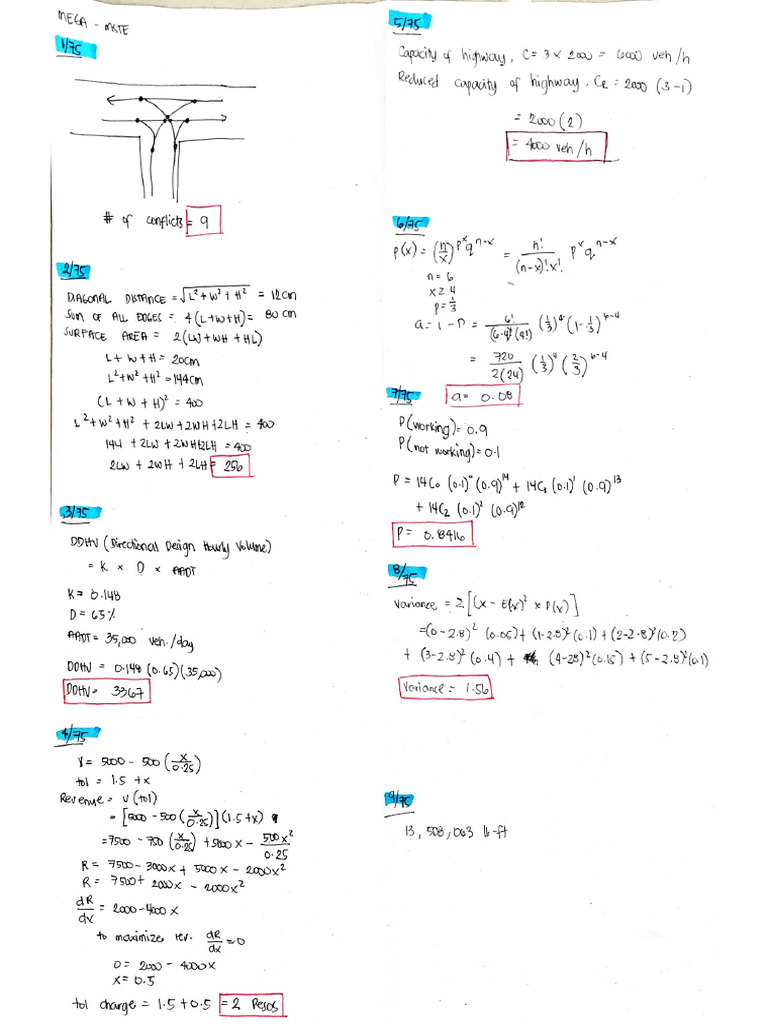 MEGA - MSTE
1/75
# of conflicts = 9
2/75
DIAGONAL DISTANCE = √L² + W² + H² = 12 cm
SUM OF ALL EDGES = 4(L+W+H) = 80 cm
SURFACE AREA = 2(LW + WH + HL)
L + W + H = 20cm
L² + W² + H² = 144cm
(L + W + H)² = 400
L² + W² + H² + 2LW + 2WH + 2LH = 400
144 + 2LW + 2WH + 2LH = 400
2LW + 2WH + 2LH = 256
3/75
DDHV (Directional Design Hourly Volume)
= K × D × AADT
K = 0.148
D = 65%
AADT = 35,000 veh./day
DDHV = 0.148 (0.65)(35,000)
DDHV = 3367
4/75
V = 5000 - 500 (x/0.25)
tol = 1.5 + x
Revenue = V (tol)
= [5000 - 500 (x/0.25)] (1.5 + x)
= 7500 - 750 (x/0.25) + 5000x - 500x²/0.25
R = 7500 - 3000x + 5000x - 2000x²
R = 7500 + 2000x - 2000x²
dR/dx = 2000 - 4000x
to maximize rev. dR/dx = 0
0 = 2000 - 4000x
x = 0.5
tol charge = 1.5 + 0.5 = 2 Pesos
5/75
Capacity of highway, C = 3 × 2000 = 6000 veh/h
Reduced capacity of highway, CR = 2000 (3-1)
= 2000 (2)
= 4000 veh/h
6/75
P(x) = (n/x) p^x q^n-x = n!/(n-x)!x! p^x q^n-x
n = 6
x ≥ 4
p = 1/3
a = 1 - p = 6!/(6-4)!(4!) (1/3)⁴ (1 - 1/3)^6-4
= 720/2(24) (1/3)⁴ (2/3)^6-4
a = 0.08
7/75
P(working) = 0.9
P(not working) = 0.1
P = 14C₀ (0.1)⁰ (0.9)¹⁴ + 14C₁ (0.1)¹ (0.9)¹³
+ 14C₂ (0.1)² (0.9)¹²
P = 0.8416
8/75
Variance = Σ[(x - E(x)² × P(x)]
= (0-2.8)² (0.05) + (1-2.8)² (0.1) + (2-2.8)² (0.2)
+ (3-2.8)² (0.4) + (4-28)² (0.15) + (5-2.8)² (0.1)
Variance = 1.56
9/75
13, 508, 063 lb-ft